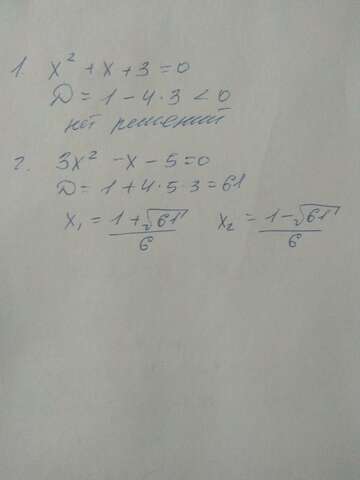 1. x² + x + 3 = 0
D = 1 - 4 · 3 < 0
нет решений
2. 3x² - x - 5 = 0
D = 1 + 4 · 5 · 3 = 61
x₁ = (1 + √61)/6 x₂ = (1 - √61)/6